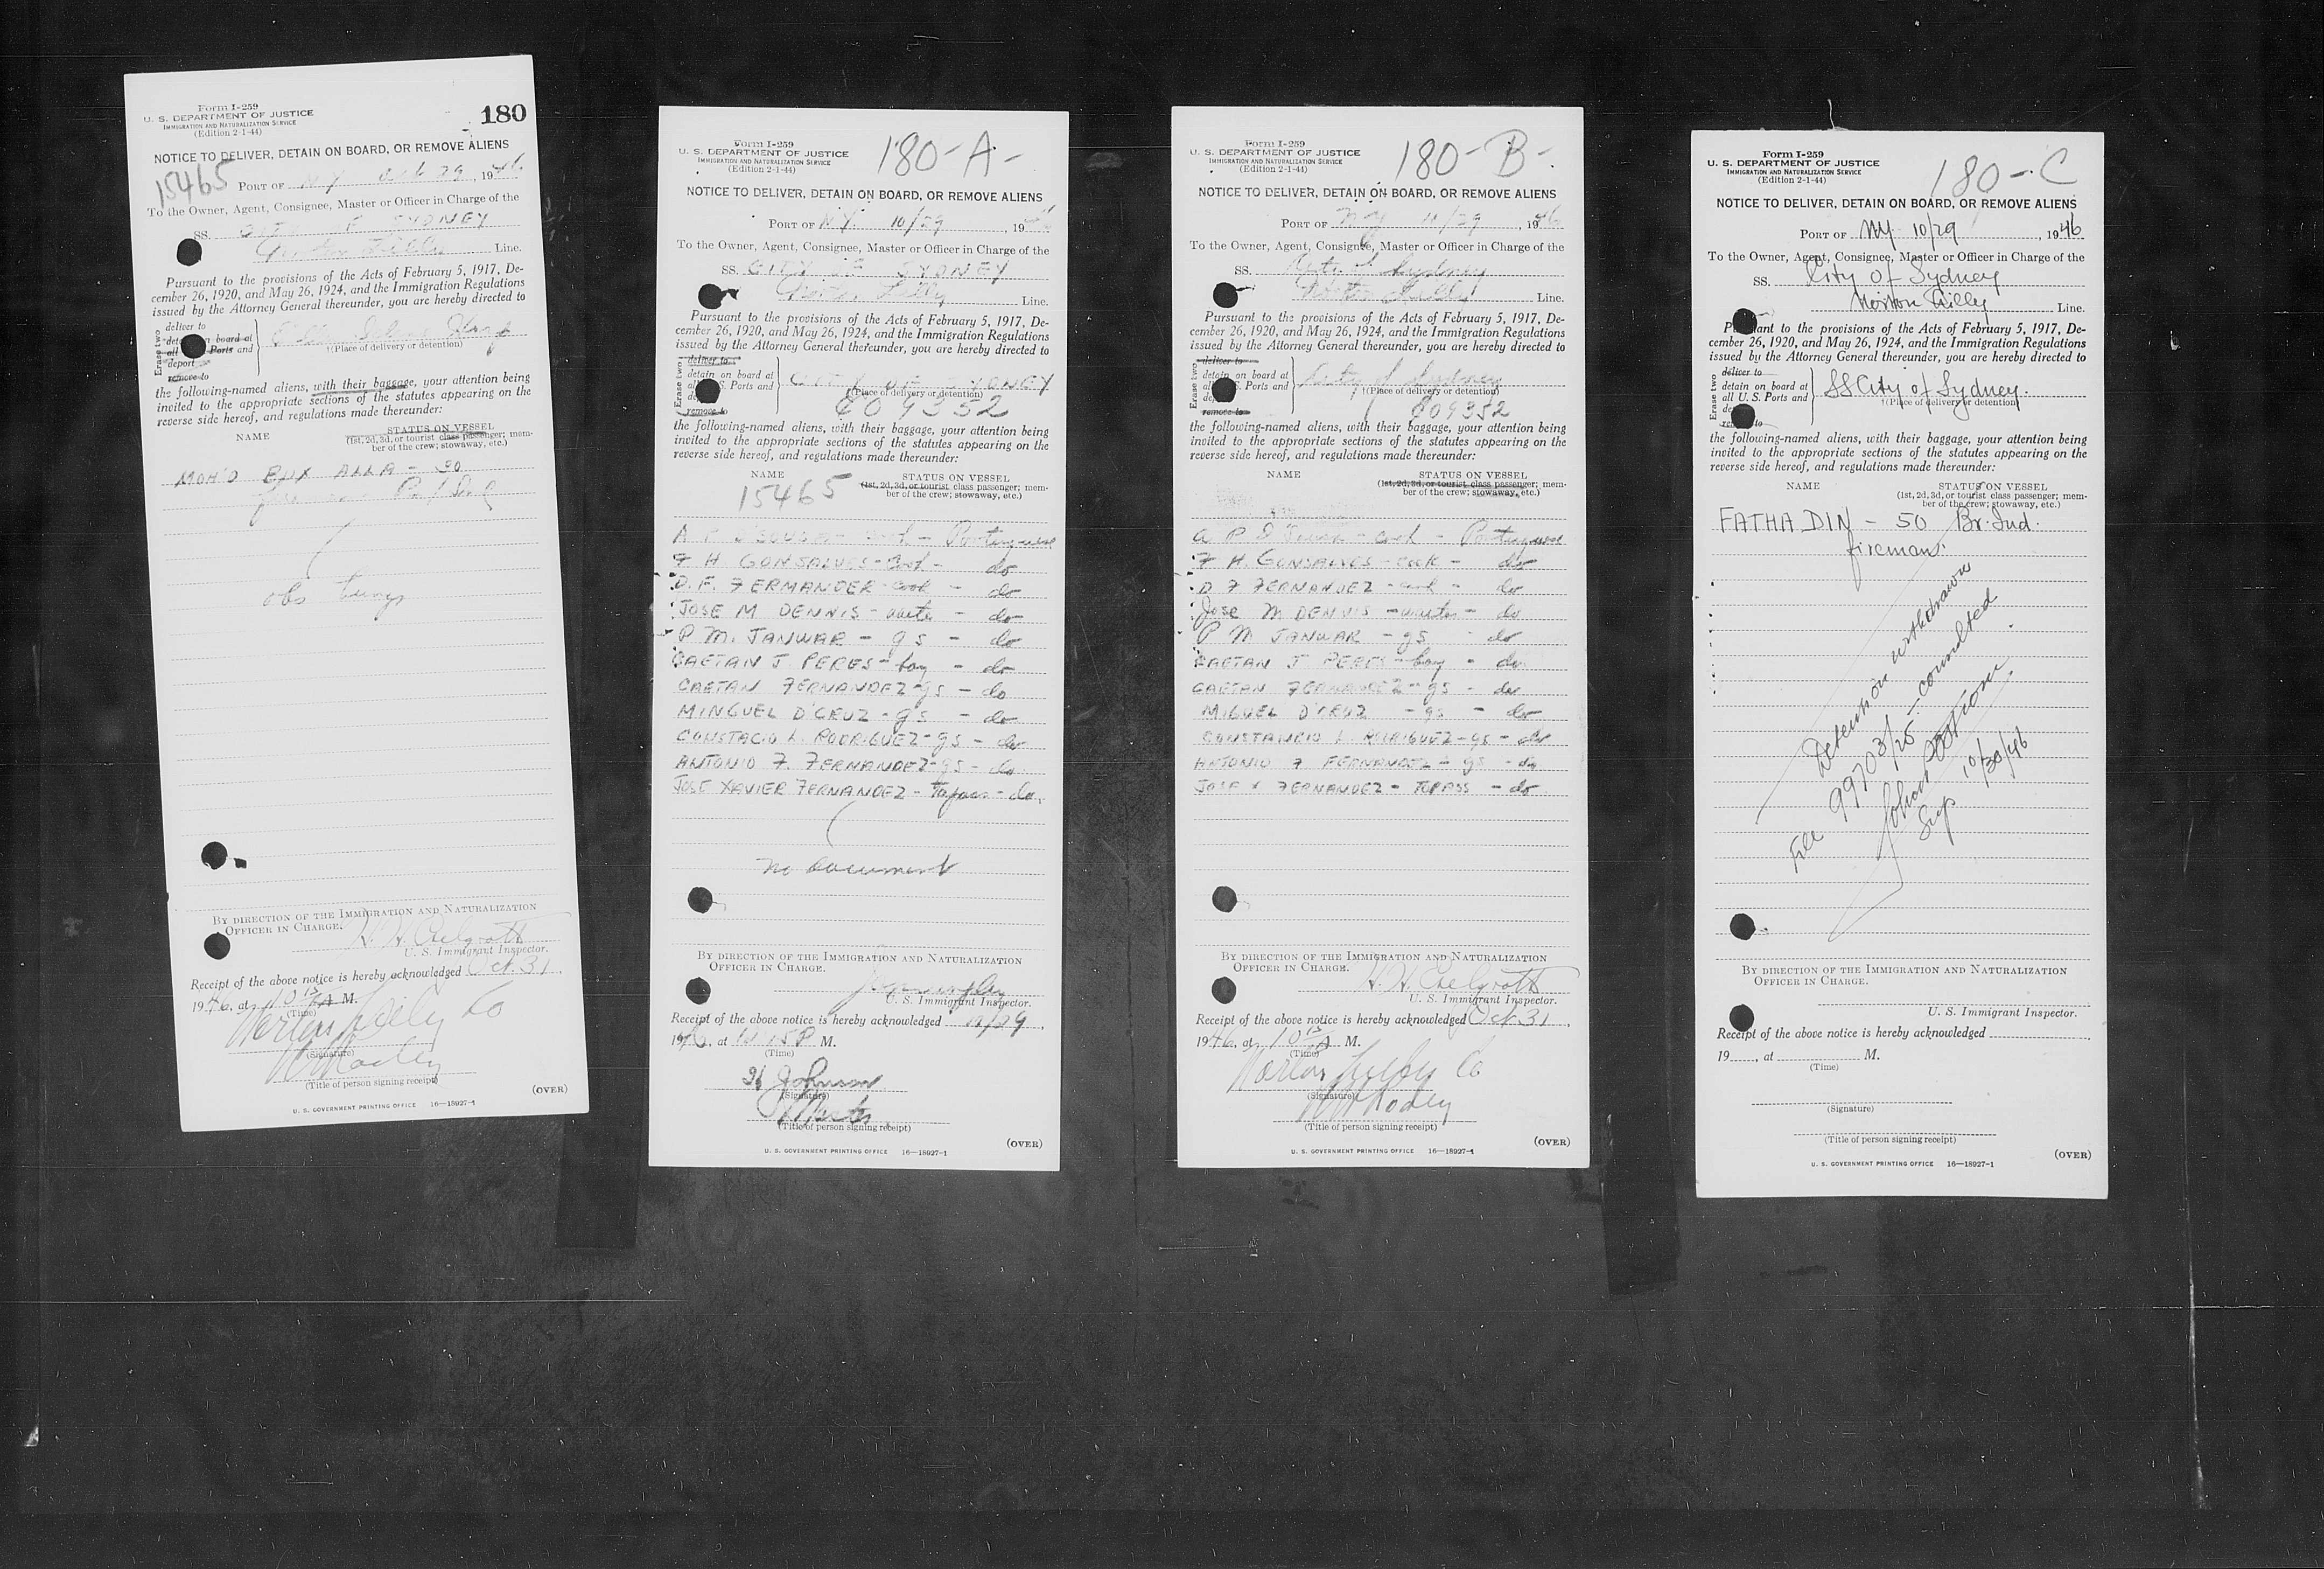 Form I-259
U. S. DEPARTMENT OF JUSTICE
IMMIGRATION AND NATURALIZATION SERVICE
(Edition 2-1-44)
180
NOTICE TO DELIVER, DETAIN ON BOARD, OR REMOVE ALIENS
15465
PORT OF NY Oct 29, 1946
To the Owner, Agent, Consignee, Master or Officer in Charge of the
SS. CITY OF SYDNEY
Norton Lilly Line.
Pursuant to the provisions of the Acts of February 5, 1917, De-
cember 26, 1920, and May 26, 1924, and the Immigration Regulations
issued by the Attorney General thereunder, you are hereby directed to
Erase two
deliver to
detain on board at
all U. S. Ports and
deport
remove to
Ellis Island
†(Place of delivery or detention)
the following-named aliens, with their baggage, your attention being
invited to the appropriate sections of the statutes appearing on the
reverse side hereof, and regulations made thereunder:
NAME STATUS ON VESSEL
(1st, 2d, 3d, or tourist class passenger; mem-
ber of the crew; stowaway, etc.)
MOH'D BUX ALLA - 30
obs lungs
BY DIRECTION OF THE IMMIGRATION AND NATURALIZATION
OFFICER IN CHARGE.
U. S. Immigrant Inspector.
Receipt of the above notice is hereby acknowledged Oct. 31,
1946, at 10 15 A M.
(Time)
Norton Lilly Co
(Signature)
(Title of person signing receipt)
(OVER)
U. S. GOVERNMENT PRINTING OFFICE 16—18927-1
Form I-259
U. S. DEPARTMENT OF JUSTICE
IMMIGRATION AND NATURALIZATION SERVICE
(Edition 2-1-44)
180-A-
NOTICE TO DELIVER, DETAIN ON BOARD, OR REMOVE ALIENS
PORT OF N.Y. 10/29, 1946
To the Owner, Agent, Consignee, Master or Officer in Charge of the
SS. CITY OF SYDNEY
Norton Lilly Line.
Pursuant to the provisions of the Acts of February 5, 1917, De-
cember 26, 1920, and May 26, 1924, and the Immigration Regulations
issued by the Attorney General thereunder, you are hereby directed to
Erase two
deliver to
detain on board at
all U. S. Ports and
deport
remove to
CITY OF SYDNEY
†(Place of delivery or detention)
609352
the following-named aliens, with their baggage, your attention being
invited to the appropriate sections of the statutes appearing on the
reverse side hereof, and regulations made thereunder:
NAME STATUS ON VESSEL
(1st, 2d, 3d, or tourist class passenger; mem-
ber of the crew; stowaway, etc.)
15465
A P D'SOUSA - cook - Portuguese
F H GONSALVES - cook - do
D. F. FERMANDER - cook - do
JOSE M DENNIS - waiter - do
P M. JANUAR - gs - do
CAETAN J PERES - boy - do
CAETAN FERNANDEZ - gs - do
MINGUEL D'CRUZ - gs - do
CONSTACIO L. RODRIGUEZ - gs - do
ANTONIO F. FERNANDEZ - gs - do
JOSE XAVIER FERNANDEZ - Topass - do.
No Document
BY DIRECTION OF THE IMMIGRATION AND NATURALIZATION
OFFICER IN CHARGE.
U. S. Immigrant Inspector.
Receipt of the above notice is hereby acknowledged 10/29,
1946, at 1215 P M.
(Time)
Johnson
(Signature)
Master
(Title of person signing receipt)
(OVER)
U. S. GOVERNMENT PRINTING OFFICE 16—18927-1
Form I-259
U. S. DEPARTMENT OF JUSTICE
IMMIGRATION AND NATURALIZATION SERVICE
(Edition 2-1-44)
180-B-
NOTICE TO DELIVER, DETAIN ON BOARD, OR REMOVE ALIENS
PORT OF NY 10/29, 1946
To the Owner, Agent, Consignee, Master or Officer in Charge of the
SS. City of Sydney
Norton Lilly Line.
Pursuant to the provisions of the Acts of February 5, 1917, De-
cember 26, 1920, and May 26, 1924, and the Immigration Regulations
issued by the Attorney General thereunder, you are hereby directed to
Erase two
deliver to
detain on board at
all U. S. Ports and
deport
remove to
City of Sydney
†(Place of delivery or detention)
609352
the following-named aliens, with their baggage, your attention being
invited to the appropriate sections of the statutes appearing on the
reverse side hereof, and regulations made thereunder:
NAME STATUS ON VESSEL
(1st, 2d, 3d, or tourist class passenger; mem-
ber of the crew; stowaway, etc.)
A P D'Sousa - cook - Portuguese
F H. GONSALVES - cook - do
D F FERNANDEZ - cook - do
Jose M DENNIS - waiter - do
P M JANUAR - gs - do
CAETAN J PERES - boy - do
CAETAN FERNANDEZ - gs - do
MIGUEL D'CRUZ - gs - do
CONSTANCIO L RODRIGUEZ - gs - do
ANTONIO F FERNANDEZ - gs - do
JOSE X FERNANDEZ - TOPASS - do
BY DIRECTION OF THE IMMIGRATION AND NATURALIZATION
OFFICER IN CHARGE.
U. S. Immigrant Inspector.
Receipt of the above notice is hereby acknowledged Oct. 31,
1946, at 10 15 A M.
(Time)
Norton Lilly Co
(Signature)
(Title of person signing receipt)
(OVER)
U. S. GOVERNMENT PRINTING OFFICE 16—18927-1
Form I-259
U. S. DEPARTMENT OF JUSTICE
IMMIGRATION AND NATURALIZATION SERVICE
(Edition 2-1-44)
180-C
NOTICE TO DELIVER, DETAIN ON BOARD, OR REMOVE ALIENS
PORT OF NY 10/29, 1946
To the Owner, Agent, Consignee, Master or Officer in Charge of the
SS. City of Sydney
Norton Lilly Line.
Pursuant to the provisions of the Acts of February 5, 1917, De-
cember 26, 1920, and May 26, 1924, and the Immigration Regulations
issued by the Attorney General thereunder, you are hereby directed to
Erase two
deliver to
detain on board at
all U. S. Ports and
deport
remove to
SS City of Sydney.
†(Place of delivery or detention)
the following-named aliens, with their baggage, your attention being
invited to the appropriate sections of the statutes appearing on the
reverse side hereof, and regulations made thereunder:
NAME STATUS ON VESSEL
(1st, 2d, 3d, or tourist class passenger; mem-
ber of the crew; stowaway, etc.)
FATHA DIN - 50 Br. Ind.
fireman.
Detention withdrawn
File 99703/25 - consulted
10/30/46
BY DIRECTION OF THE IMMIGRATION AND NATURALIZATION
OFFICER IN CHARGE.
U. S. Immigrant Inspector.
Receipt of the above notice is hereby acknowledged
19, at M.
(Time)
(Signature)
(Title of person signing receipt)
(OVER)
U. S. GOVERNMENT PRINTING OFFICE 16—18927-1